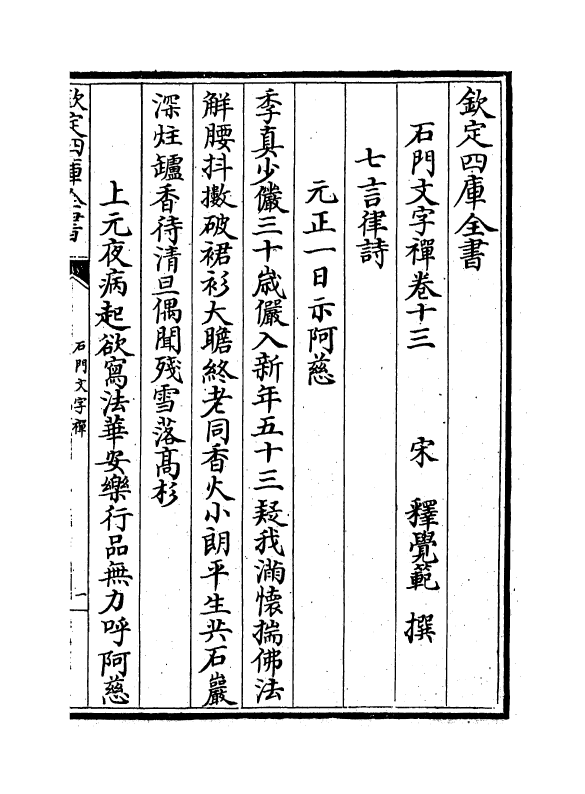 欽定四庫全書
石門文字禪卷十三　宋　釋覺範　撰
七言律詩
元正一日示阿慈
季真少儼三十歲儼入新年五十三疑我滿懷揣佛法
解腰抖擻破裙衫大瞻終老同香火小朗平生共石巖
深炷鑪香待清旦偶聞殘雪落髙杉
上元夜病起欲寫法華安樂行品無力呼阿慈
欽定四庫全書
石門文字禪
一